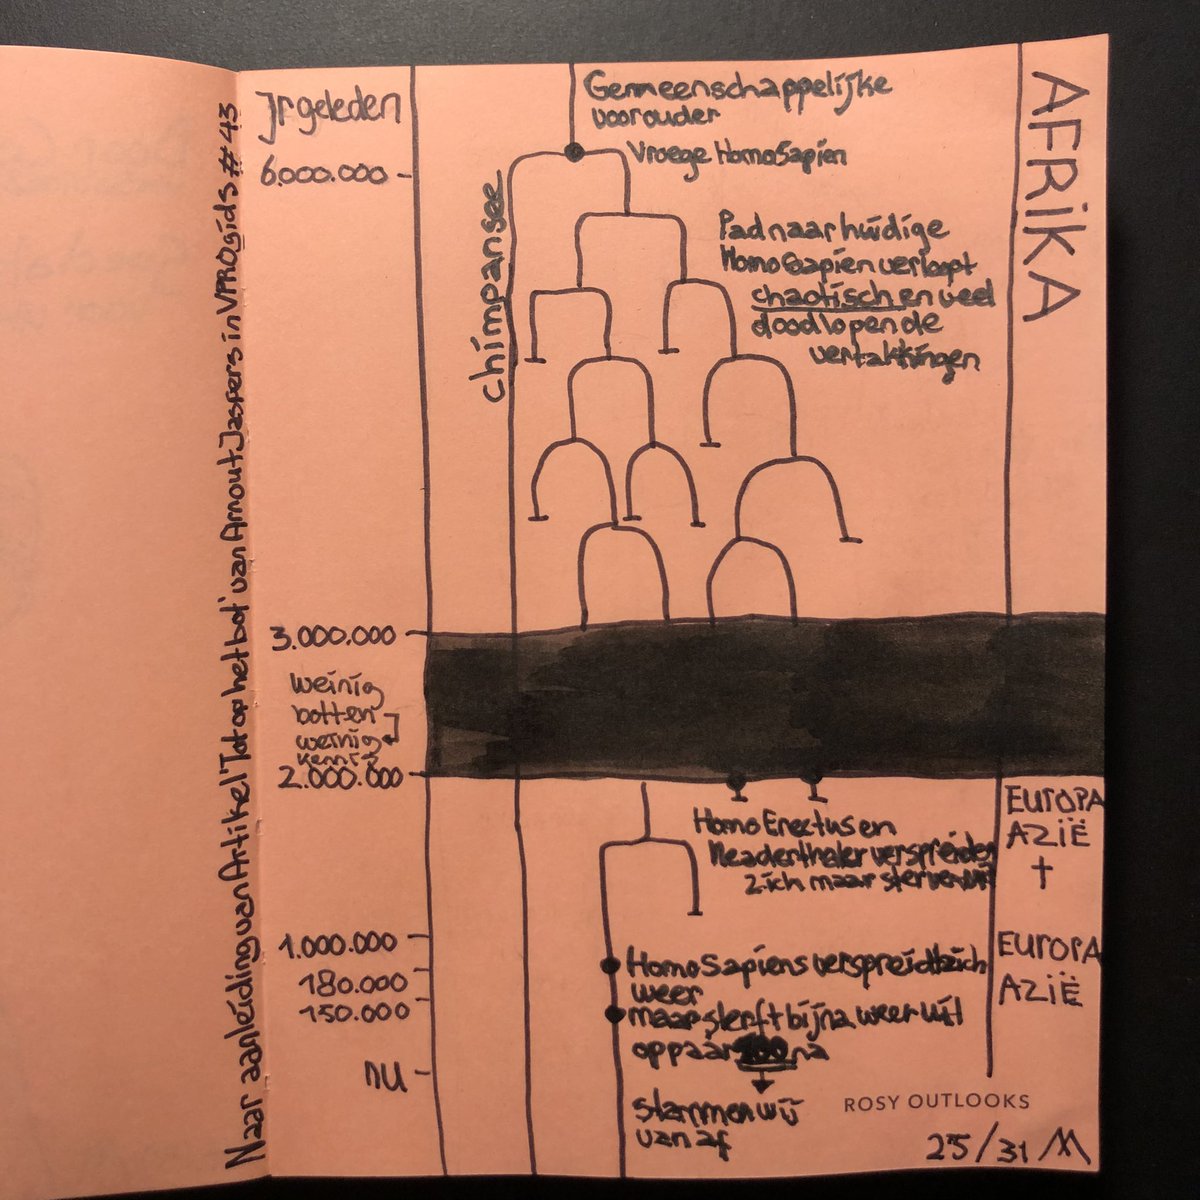 Naar aanleiding van Artikel 'Tot op het bot' van Arnout Jaspers in VPROgids #43
Jr geleden
Gemeenschappelijke
voorouder
Vroege HomoSapien
6.000.000
chimpansee
AFRIKA
Pad naar huidige
Homo Sapien verloopt
chaotisch en veel
doodlopende
vertakkingen
3.000.000
weinig
botten
weinig
kennis
2.000.000
EUROPA
AZIË
†
Homo Erectus en
Neaderthaler verspreiden
zich maar sterven uit
1.000.000
180.000
150.000
NU
Homo Sapiens verspreidt zich
weer
maar sterft bijna weer uit
op paar 100 na
EUROPA
AZIË
stammen wij
van af
ROSY OUTLOOKS
25/31 M